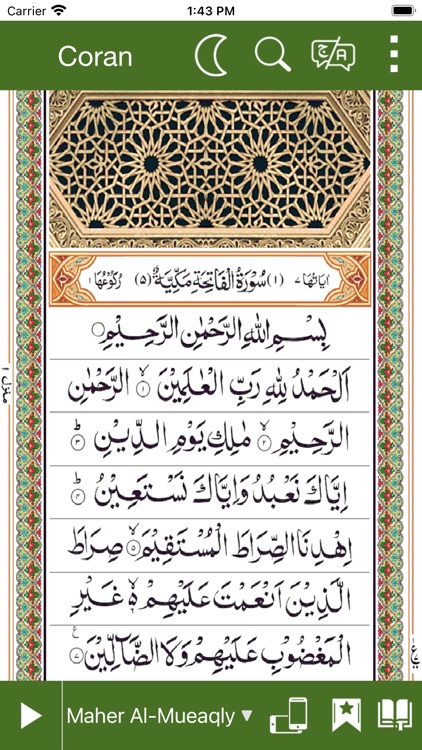 Carrier 1:43 PM
Coran
اٰيَاتُهَا ٧ (١) سُوْرَةُ الْفَاتِحَةِ مَكِّيَّةٌ (٥) رُكُوْعُهَا ١
بِسْمِ اللّٰهِ الرَّحْمٰنِ الرَّحِيْمِ
اَلْحَمْدُ لِلّٰهِ رَبِّ الْعٰلَمِيْنَ ١ الرَّحْمٰنِ
الرَّحِيْمِ ٢ مٰلِكِ يَوْمِ الدِّيْنِ ٣
اِيَّاكَ نَعْبُدُ وَاِيَّاكَ نَسْتَعِيْنُ ٤
اِهْدِنَا الصِّرَاطَ الْمُسْتَقِيْمَ ٥ صِرَاطَ
الَّذِيْنَ اَنْعَمْتَ عَلَيْهِمْ ٦ غَيْرِ
الْمَغْضُوْبِ عَلَيْهِمْ وَلَا الضَّآلِّيْنَ ٧
منزل ١
Maher Al-Mueaqly